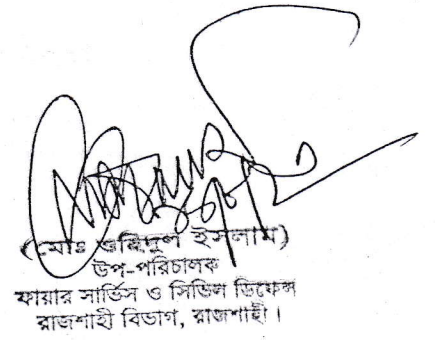 (মোঃ ওহিদুল ইসলাম)
উপ-পরিচালক
ফায়ার সার্ভিস ও সিভিল ডিফেন্স
রাজশাহী বিভাগ, রাজশাহী।